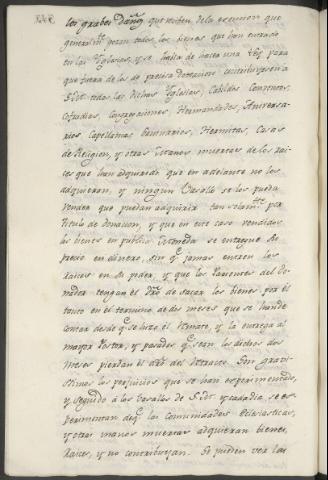 los grabes daños que reciben de la exempcion que
generalmte gozan todos los bienes que han entrado
en las Yglesias, y se habia de hacer una Ley para
que fuera de los de precisa dotacion
S.M. todas las dichas Yglesias, Cabildos Conventos
Cofradias, Congregaciones, Hermandades, Aniversa-
rios Capellanias Seminarios, Hermitas, Casas
de Religion, y otras Manos muertas de los rai-
ces que han adquirido que en adelante no los
adquieran, y ningun Vasallo se los pueda
vender que puedan adquirirlos tan solamte por
titulo de donacion, y que en este caso vendidos
los bienes en publica Moneda se entregue de
precio en dinero sin qe jamas entren los
raices en su poder, y que los Parientes del do-
nador tengan el dro de sacar los bienes por el
tanto en el termino de dos meses que se han de
contar desde qe se hizo el Remate, y la entrega al
mayor Postor, y pasados qe sean los dichos dos
meses pierdan el dro del Retracto. Son gravi-
simos los perjuicios que se han experimentado,
y seguido a los vasallos de S.M. y cada dia se es-
perimentan de qe las comunidades Eclesiasticas,
y otras manos muertas adquieran bienes
raices, y no contribuyan. Se pueden ver las